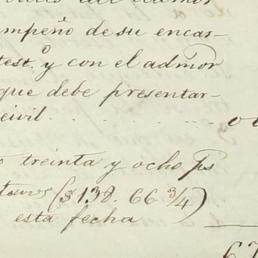 mpeño de su encar-
test.o y con el admor
que debe presentar-
civil
o treinta y ocho ps
($ 138. 66 3/4)
esta fecha